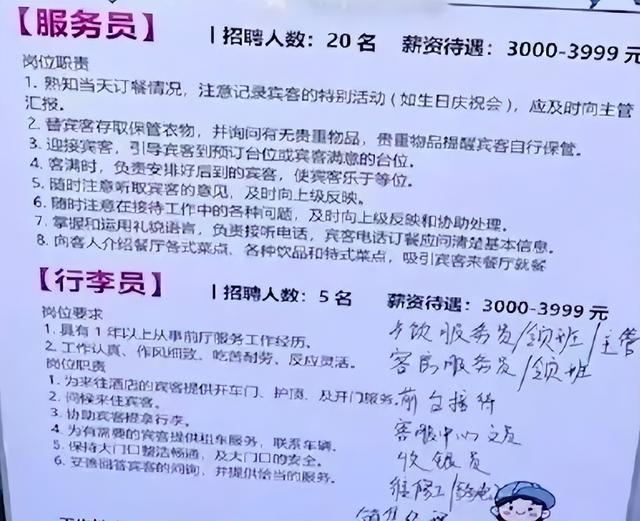 【服务员】 | 招聘人数：20 名 薪资待遇：3000-3999 元
岗位职责
1. 熟知当天订餐情况，注意记录宾客的特别活动（如生日庆祝会），应及时向主管
汇报。
2. 替宾客存取保管衣物，并询问有无贵重物品，贵重物品提醒宾客自行保管。
3. 迎接宾客，引导宾客到预订台位或宾客满意的台位。
4. 客满时，负责安排好后到的宾客，使宾客乐于等位。
5. 随时注意听取宾客的意见，及时向上级反映。
6. 随时注意在接待工作中的各种问题，及时向上级反映和协助处理。
7. 掌握和运用礼貌语言，负责接听电话，宾客电话订餐应问清楚基本信息。
8. 向客人介绍餐厅各式菜点、各种饮品和特式菜点，吸引宾客来餐厅就餐
【行李员】 | 招聘人数：5 名 薪资待遇：3000-3999 元
岗位要求
1. 具有 1 年以上从事前厅服务工作经历。
2. 工作认真、作风细致、吃苦耐劳、反应灵活。
岗位职责
1. 为来往酒店的宾客提供开车门、护顶、及开门服务。
2. 问候来住宾客。
3. 协助宾客提拿行李。
4. 为有需要的宾客提供租车服务，联系车辆。
5. 保持大门口整洁畅通，及大门口的安全。
6. 妥善回答宾客的问询，并提供恰当的服务。
餐饮服务员/领班/主管
客房服务员/领班
前台接待
客服中心文员
收银员
维修工